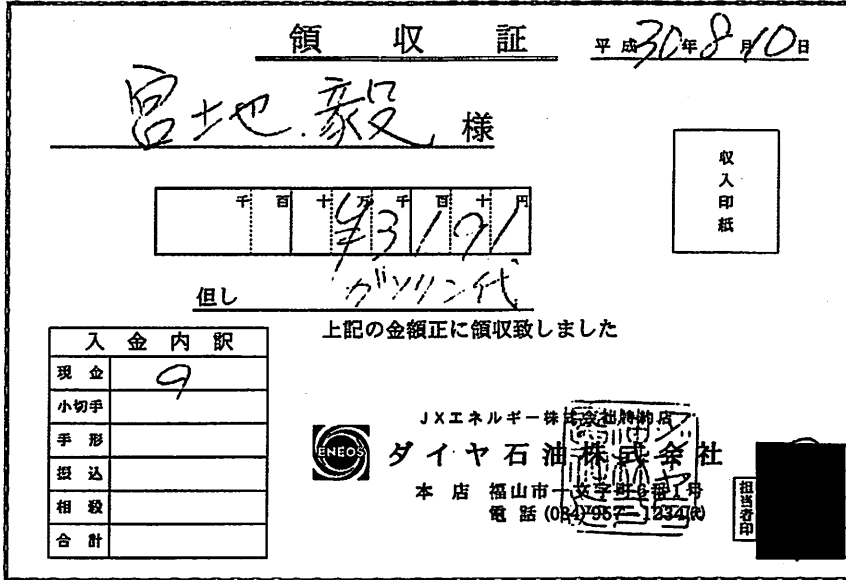 領収証
平成30年8月10日
宮地 毅 様
収入印紙
千百十万千百十円
¥3191
但し ガソリン代
上記の金額正に領収致しました
入金内訳
現金
小切手
手形
振込
相殺
合計
JXエネルギー株式会社特約店
ENEOS
ダイヤ石油株式会社
本店 福山市一文字町6番1号
電話(084)957-1234(代)
担当者印